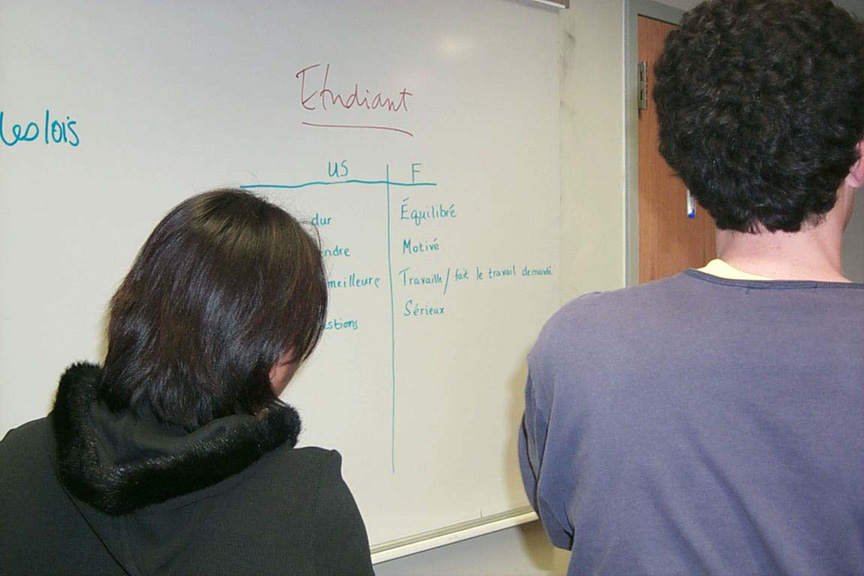 Les lois
Etudiant
US F
dur Équilibré
ndre Motivé
meilleure Travaille/fait le travail demandé
stions Sérieux